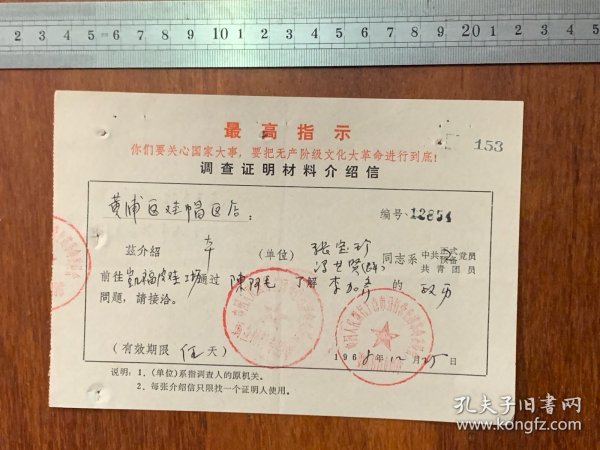 2 3 4 5 6 7 8 9 10 1 2 3 4 5 6 7 8 9 20 1 2
最高指示
153
你们要关心国家大事，要把无产阶级文化大革命进行到底！
调查证明材料介绍信
黄浦区鞋帽区店：
编号：12854
兹介紹 本 （单位） 张宝珍 同志系 中共 正式 预备 党员
共青团员
前往 通过 陳阿毛 了解 的
問題，請接洽。
（有效期限 伍 天）
1968年12月25日
说明：1、(单位)系指调查人的原机关。
2、每张介绍信只限找一个证明人使用。
孔夫子旧書网
www.kongfz.com